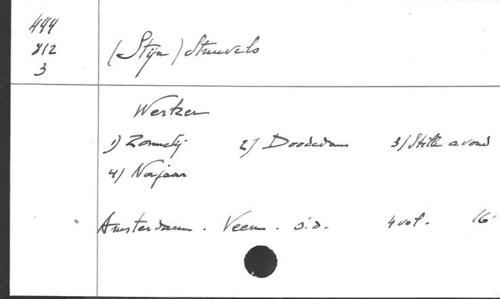 444
812
3
(Stijn) Streuvels
Werken
1) Zonnetij 2) Doodendans 3) Stille avond
4) Najaar
Amsterdam. Veen. s.d. 4 vol. 16